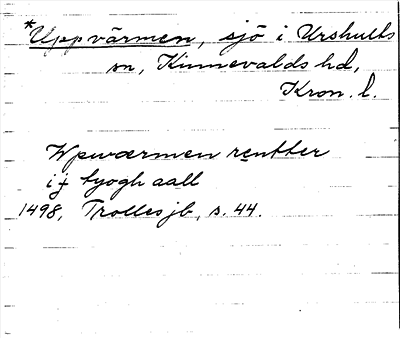 *Uppvärmen, sjö i Urshults
sn, Kinnevalds hd,
Kron. l.
Wpwærmen rentter
i ɉ tyogh aall
1498, Trolles jb, s. 44.